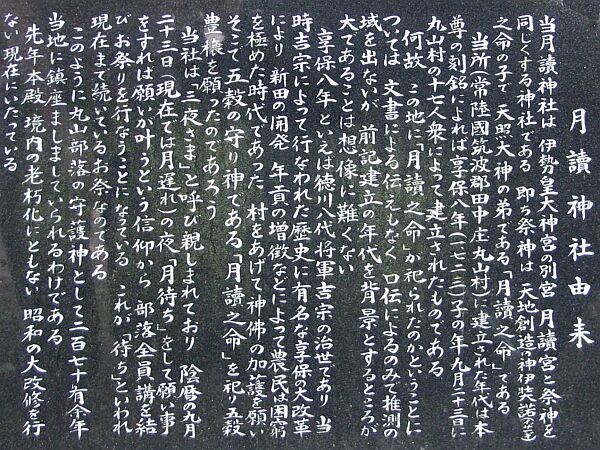 月讀神社由来
当月讀神社は 伊勢皇大神宮の別宮 月讀宮と祭神を
同じくする神社である 即ち祭神は 天地創造の神伊弉諾の
之命の子で 天照大神の弟である「月讀之命」である
当所 常陸國筑波郡田中庄丸山村に建立された年代は本
尊の刻銘によれば享保八年(一七二三)子の年九月二十三日に
丸山村の十七人衆によって建立されたものである
何故 この地に「月讀之命」が祀られたのかということに
ついては 文書による伝えしなく 口伝によるのみで推測の
域を出ないが 前記建立の年代を背景とするところが
大であることは想像に難くない
享保八年といえば徳川八代将軍吉宗の治世であり 当
時吉宗によって行なわれた歴史に有名な享保の大改革
により 新田の開発 年貢の増徴などによって農民は困窮
を極めた時代であった 村をあげて神佛の加護を願い
そこで五穀の守り神である「月讀之命」を祀り五穀
豊穣を願ったのであろう
当社は「三夜さま」と呼び親しまれており 陰暦の九月
二十三日(現在では月遅れ)の夜「月待ち」をして願い事
をすれば願いが叶うという信仰から 部落全員講を結
びお祭りを行なうことになっている これが「待ち」といわれ
現在まで続いているお祭なのである
このように丸山部落の守護神として二百七十有余年
当地に鎮座ましましていられるわけである
先年本殿 境内の老朽化にともない 昭和の大改修を行
ない現在にいたっている